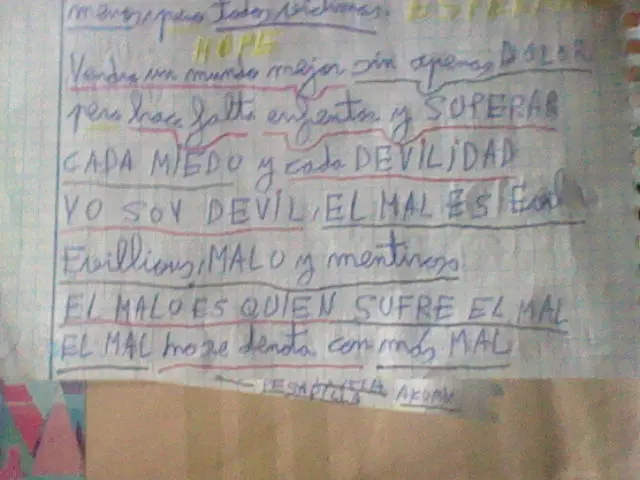 menos, pero todos
HOPE
Vendra un mundo mejor sin apenas DOLOR
pero hace falta enfrentar y SUPERAR
CADA MIEDO y cada DEVILIDAD
YO SOY DEVIL, EL MAL ES
MALO y mentiroso
EL MALO ES QUIEN SUFRE EL MAL
EL MAL no se derrota con más MAL